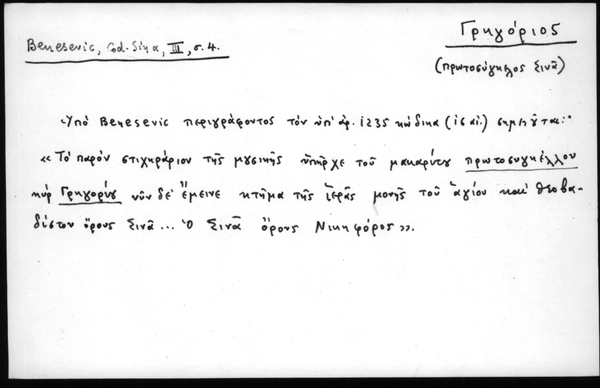 Γρηγόριος
Benesevic, Cod. Sina, III, σ. 4.
(πρωτοσύγκελος Σινᾶ)
Ὑπὸ Benesevic περιγράφοντος τὸν ὑπ' ἀρ. 1235 κώδικα (ις αἰ.) σημειοῦται:
« Τὸ παρὸν στιχηράριον τῆς μουσικῆς ὑπῆρχε τοῦ μακαρίτου πρωτοσυγκέλλου
κὺρ Γρηγορίου νῦν δὲ ἔμεινε κτῆμα τῆς ἱερᾶς μονῆς τοῦ ἁγίου καὶ θεοβα-
δίστου ὄρους Σινᾶ ... Ὁ Σινᾶ ὄρους Νικηφόρος ».